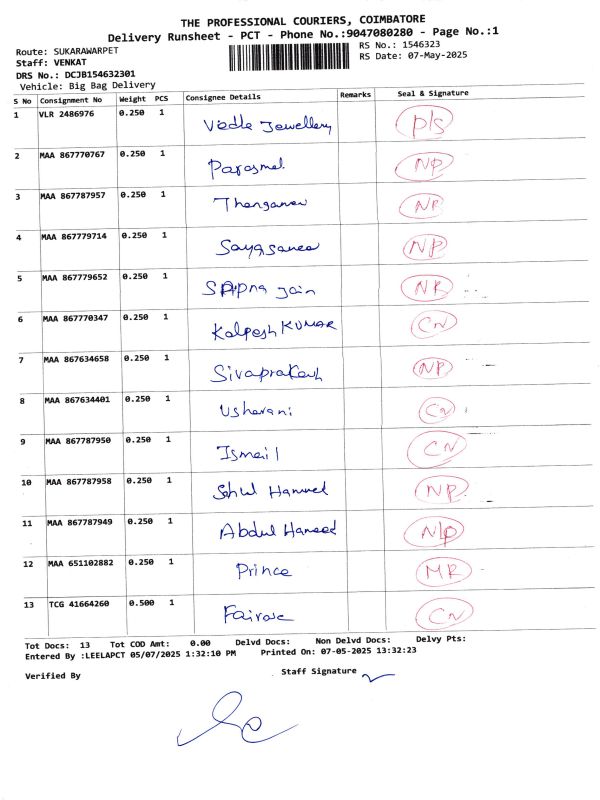 THE PROFESSIONAL COURIERS, COIMBATORE
Delivery Runsheet - PCT - Phone No.:9047080280 - Page No.:1
Route: SUKARAWARPET
RS No.: 1546323
Staff: VENKAT
RS Date: 07-May-2025
DRS No.: DCJB154632301
Vehicle: Big Bag Delivery
S No Consignment No Weight PCS Consignee Details Remarks Seal & Signature
1 VLR 2486976 0.250 1 Jewellery P/S
2 MAA 867770767 0.250 1 Parasmal NP
3 MAA 867787957 0.250 1 NP
4 MAA 867779714 0.250 1 NP
5 MAA 867779652 0.250 1 Sapna Jain NP
6 MAA 867770347 0.250 1 Kalpesh KUMAR CN
7 MAA 867634658 0.250 1 Sivaprakash NP
8 MAA 867634401 0.250 1 Usharani CN
9 MAA 867787950 0.250 1 Ismail CN
10 MAA 867787958 0.250 1 NP
11 MAA 867787949 0.250 1 Abdul Hameed N/P
12 MAA 651102882 0.250 1 Prince MR
13 TCG 41664260 0.500 1 Fairose CN
Tot Docs: 13 Tot COD Amt: 0.00 Delvd Docs: Non Delvd Docs: Delvy Pts:
Entered By :LEELAPCT 05/07/2025 1:32:10 PM Printed On: 07-05-2025 13:32:23
Verified By Staff Signature